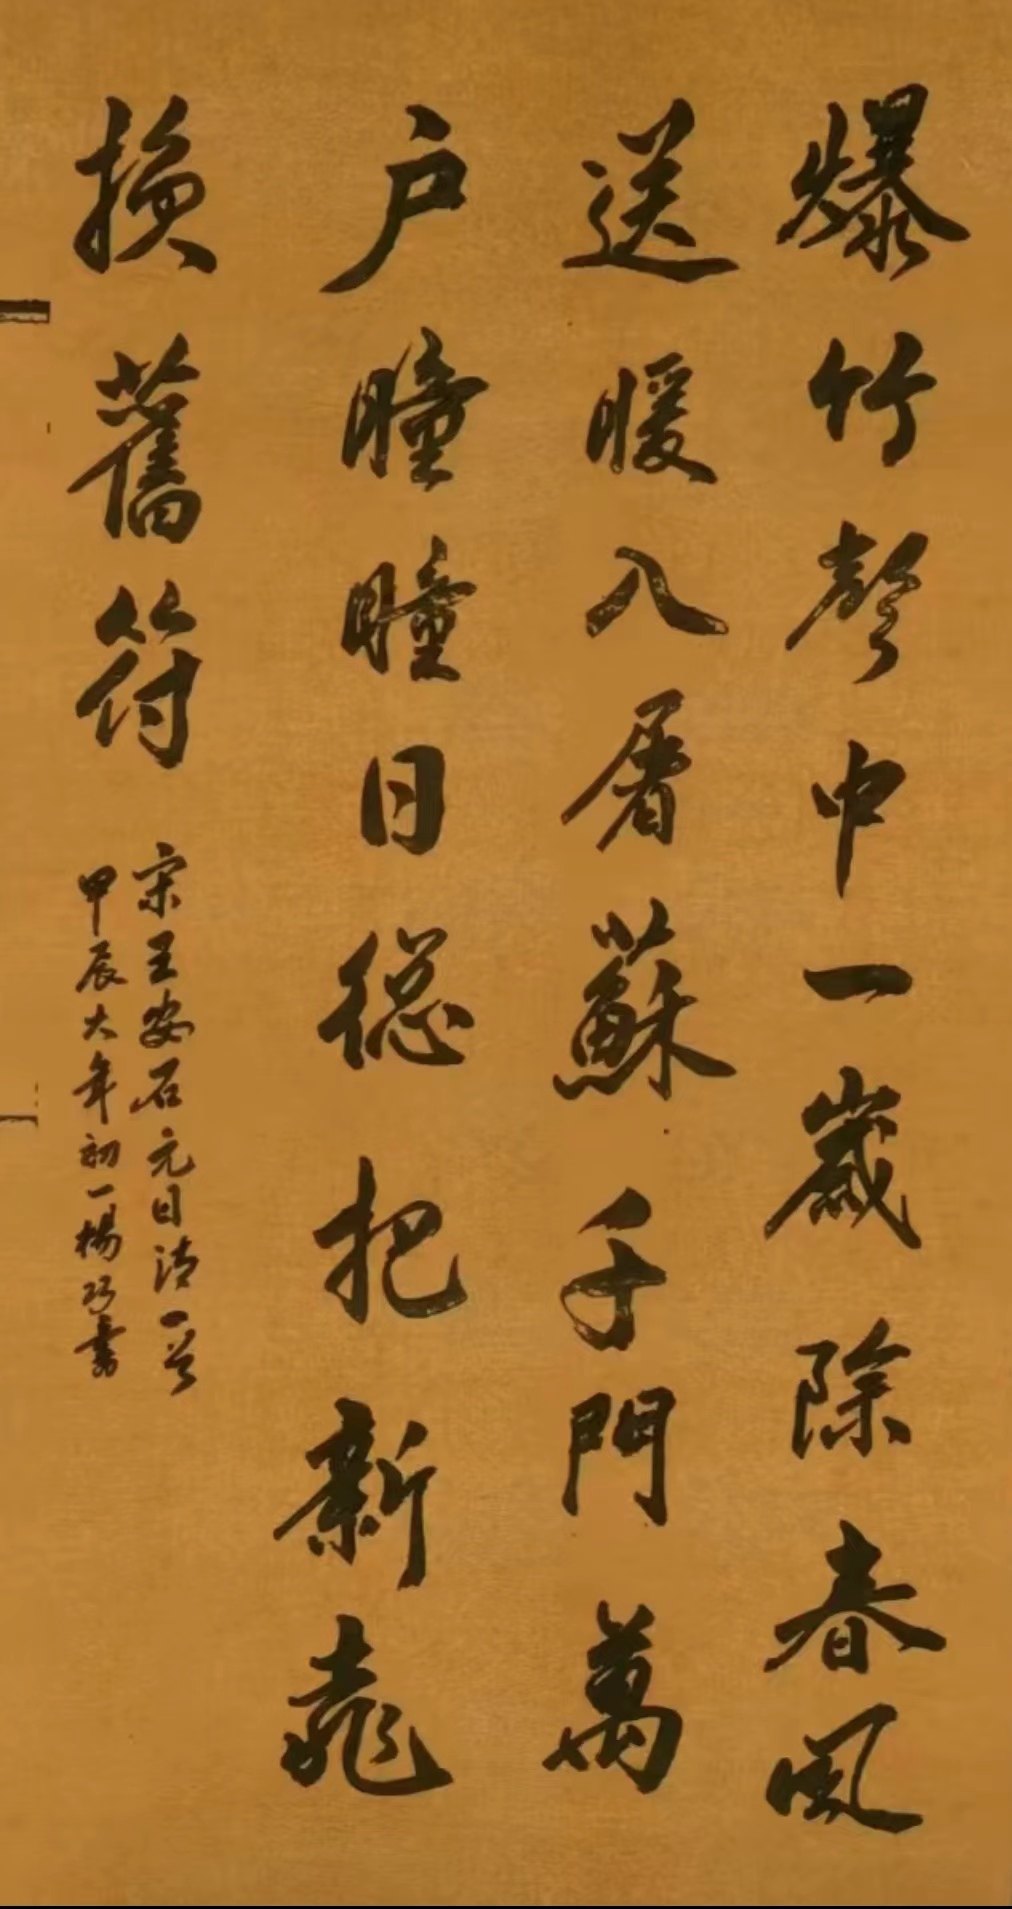 爆竹聲中一歲除春風
送暖入屠蘇千門萬
户曈曈日總把新桃
換舊符
宋王安石元日詩一首
甲辰大年初一楊巧書